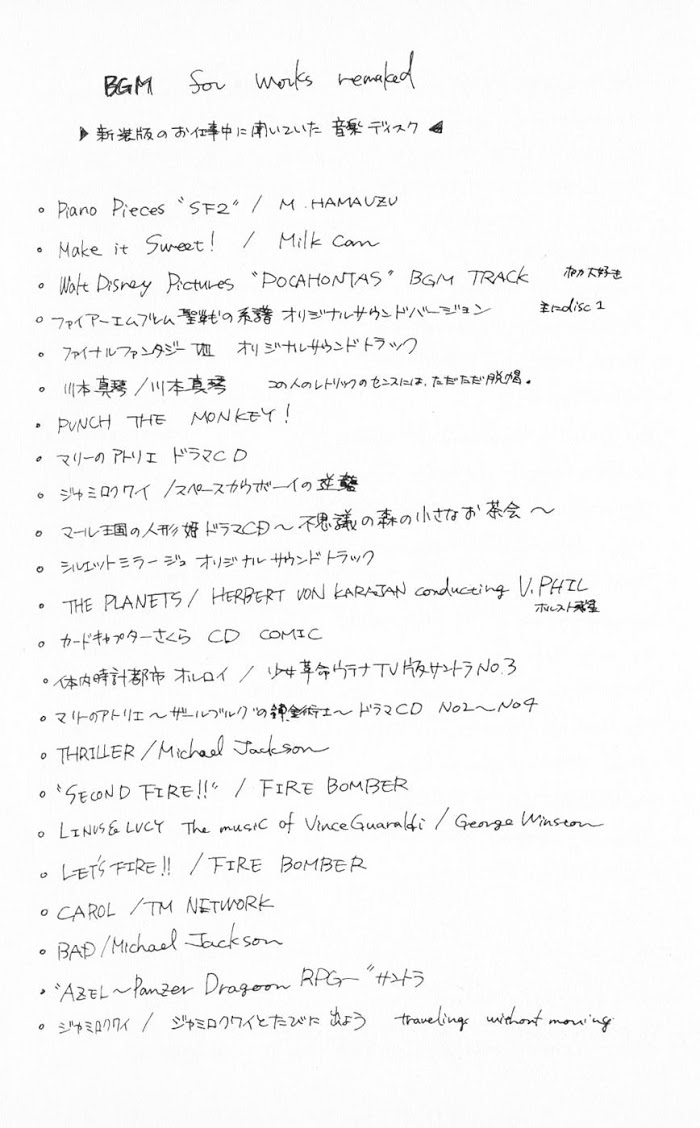 BGM for works remaked
▶新装版のお仕事中に聞いていた 音楽ディスク◀
。Piano Pieces "SF2" / M.HAMAUZU
。Make it Sweet! / Milk Can
。Walt Disney Pictures "POCHAHONTAS" BGM TRACK ポカ大好き
。ファイアーエムブレム 聖戦の系譜 オリジナルサウンドバージョン 主にdisc 1
。ファイナルファンタジー VII オリジナルサウンドトラック
。川本真琴/川本真琴 この人のレトリックのセンスには、ただただ脱帽。
。PUNCH THE MONKEY!
。マリーのアトリエ ドラマCD
。ジャミロクワイ /スペースカウボーイの逆襲
。マール王国の人形姫ドラマCD〜不思議の森の小さなお茶会〜
。シルエットミラージュ オリジナルサウンドトラック
。THE PLANETS/ HERBERT VON KARAJAN conducting V.PHIL
ホルスト 惑星
。カードキャプターさくら CD COMIC
。体内時計都市 オルロイ / 少女革命ウテナTV版サントラNo.3
。マリーのアトリエ〜ザールブルグの錬金術士〜ドラマCD No2〜No4
。THRILLER/Michael Jackson
。"SECOND FIRE!!" / FIRE BOMBER
。LINUS & LUCY The music of Vince Guaraldi / George Winston
。LET'S FIRE!! /FIRE BOMBER
。CAROL /TM NETWORK
。BAD/Michael Jackson
。"AZEL〜Panzer Dragoon RPG〜"サントラ
。ジャミロクワイ / ジャミロクワイとたびに出よう traveling without moving